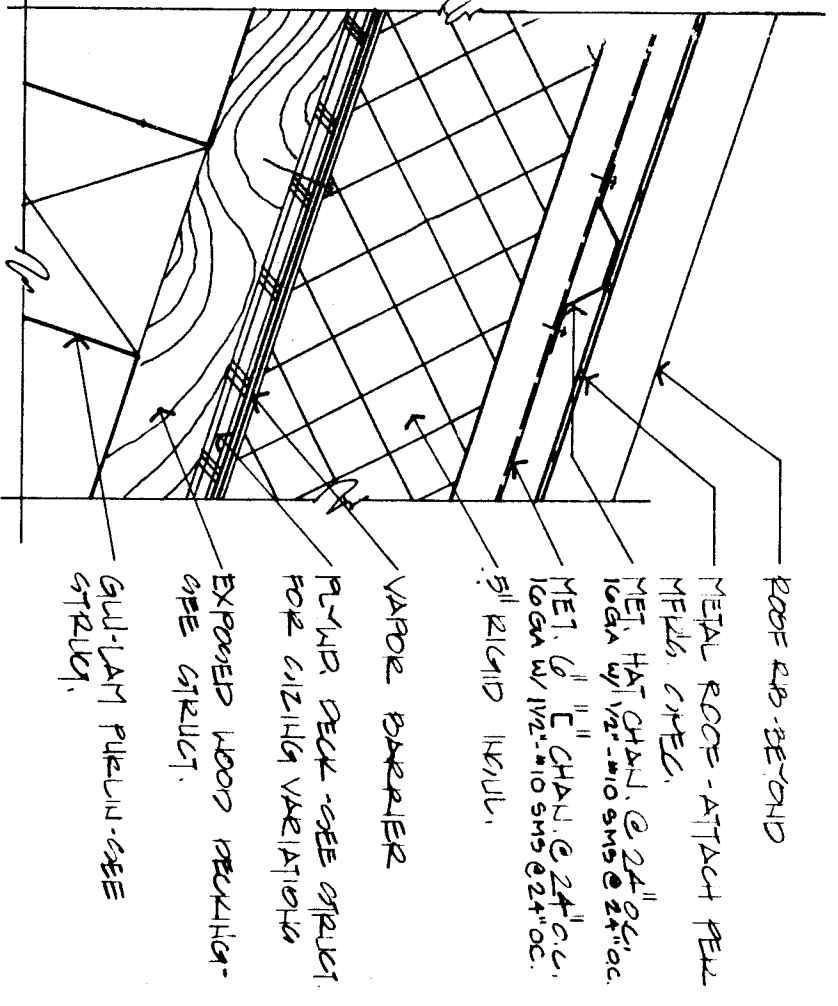 ROOF RIB-BEYOND
METAL ROOF-ATTACH PER
MFRG. SPEC.
MET. HAT CHAN. @ 24" O.C.
16GA W/ 1/2"-#10 SMS @ 24" O.C.
MET. 6" [ CHAN. @ 24" O.C.
16GA W/ 1 1/2"-#10 SMS @ 24" OC.
5" RIGID INSUL.
VAPOR BARRIER
PLYWD. DECK-SEE STRUCT.
FOR SIZING VARIATIONS
EXPOSED WOOD DECKING-
SEE STRUCT.
GLU-LAM PURLIN-SEE
STRUCT.